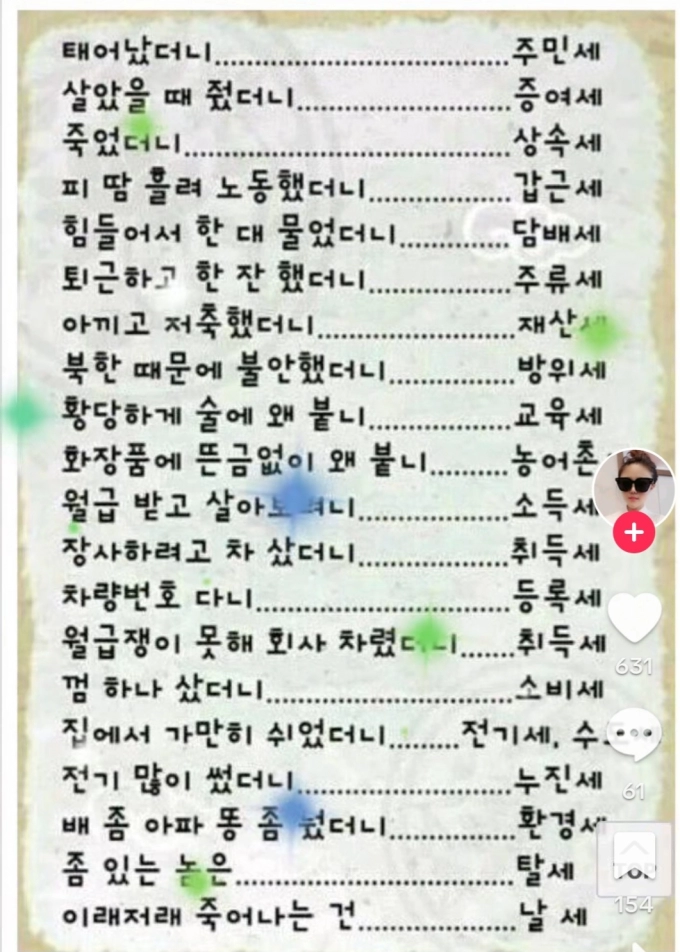 태어났더니..................................주민세
살았을 때 줬더니.........................증여세
죽었더니......................................상속세
피 땀 흘려 노동했더니.................갑근세
힘들어서 한 대 물었더니.............담배세
퇴근하고 한 잔 했더니.................주류세
아끼고 저축했더니.......................재산세
북한 때문에 불안했더니...............방위세
황당하게 술에 왜 붙니.................교육세
화장품에 뜬금없이 왜 붙니.........농어촌
월급 받고 살아보려니...................소득세
장사하려고 차 샀더니...................취득세
차량번호 다니..............................등록세
월급쟁이 못해 회사 차렸더니.......취득세
껌 하나 샀더니.............................소비세
집에서 가만히 쉬었더니.........전기세, 수
전기 많이 썼더니..........................누진세
배 좀 아파 똥 좀 눴더니...............환경세
좀 있는 놈은.................................탈세
이래저래 죽어나는 건...................날 세
631
61
TOP
154